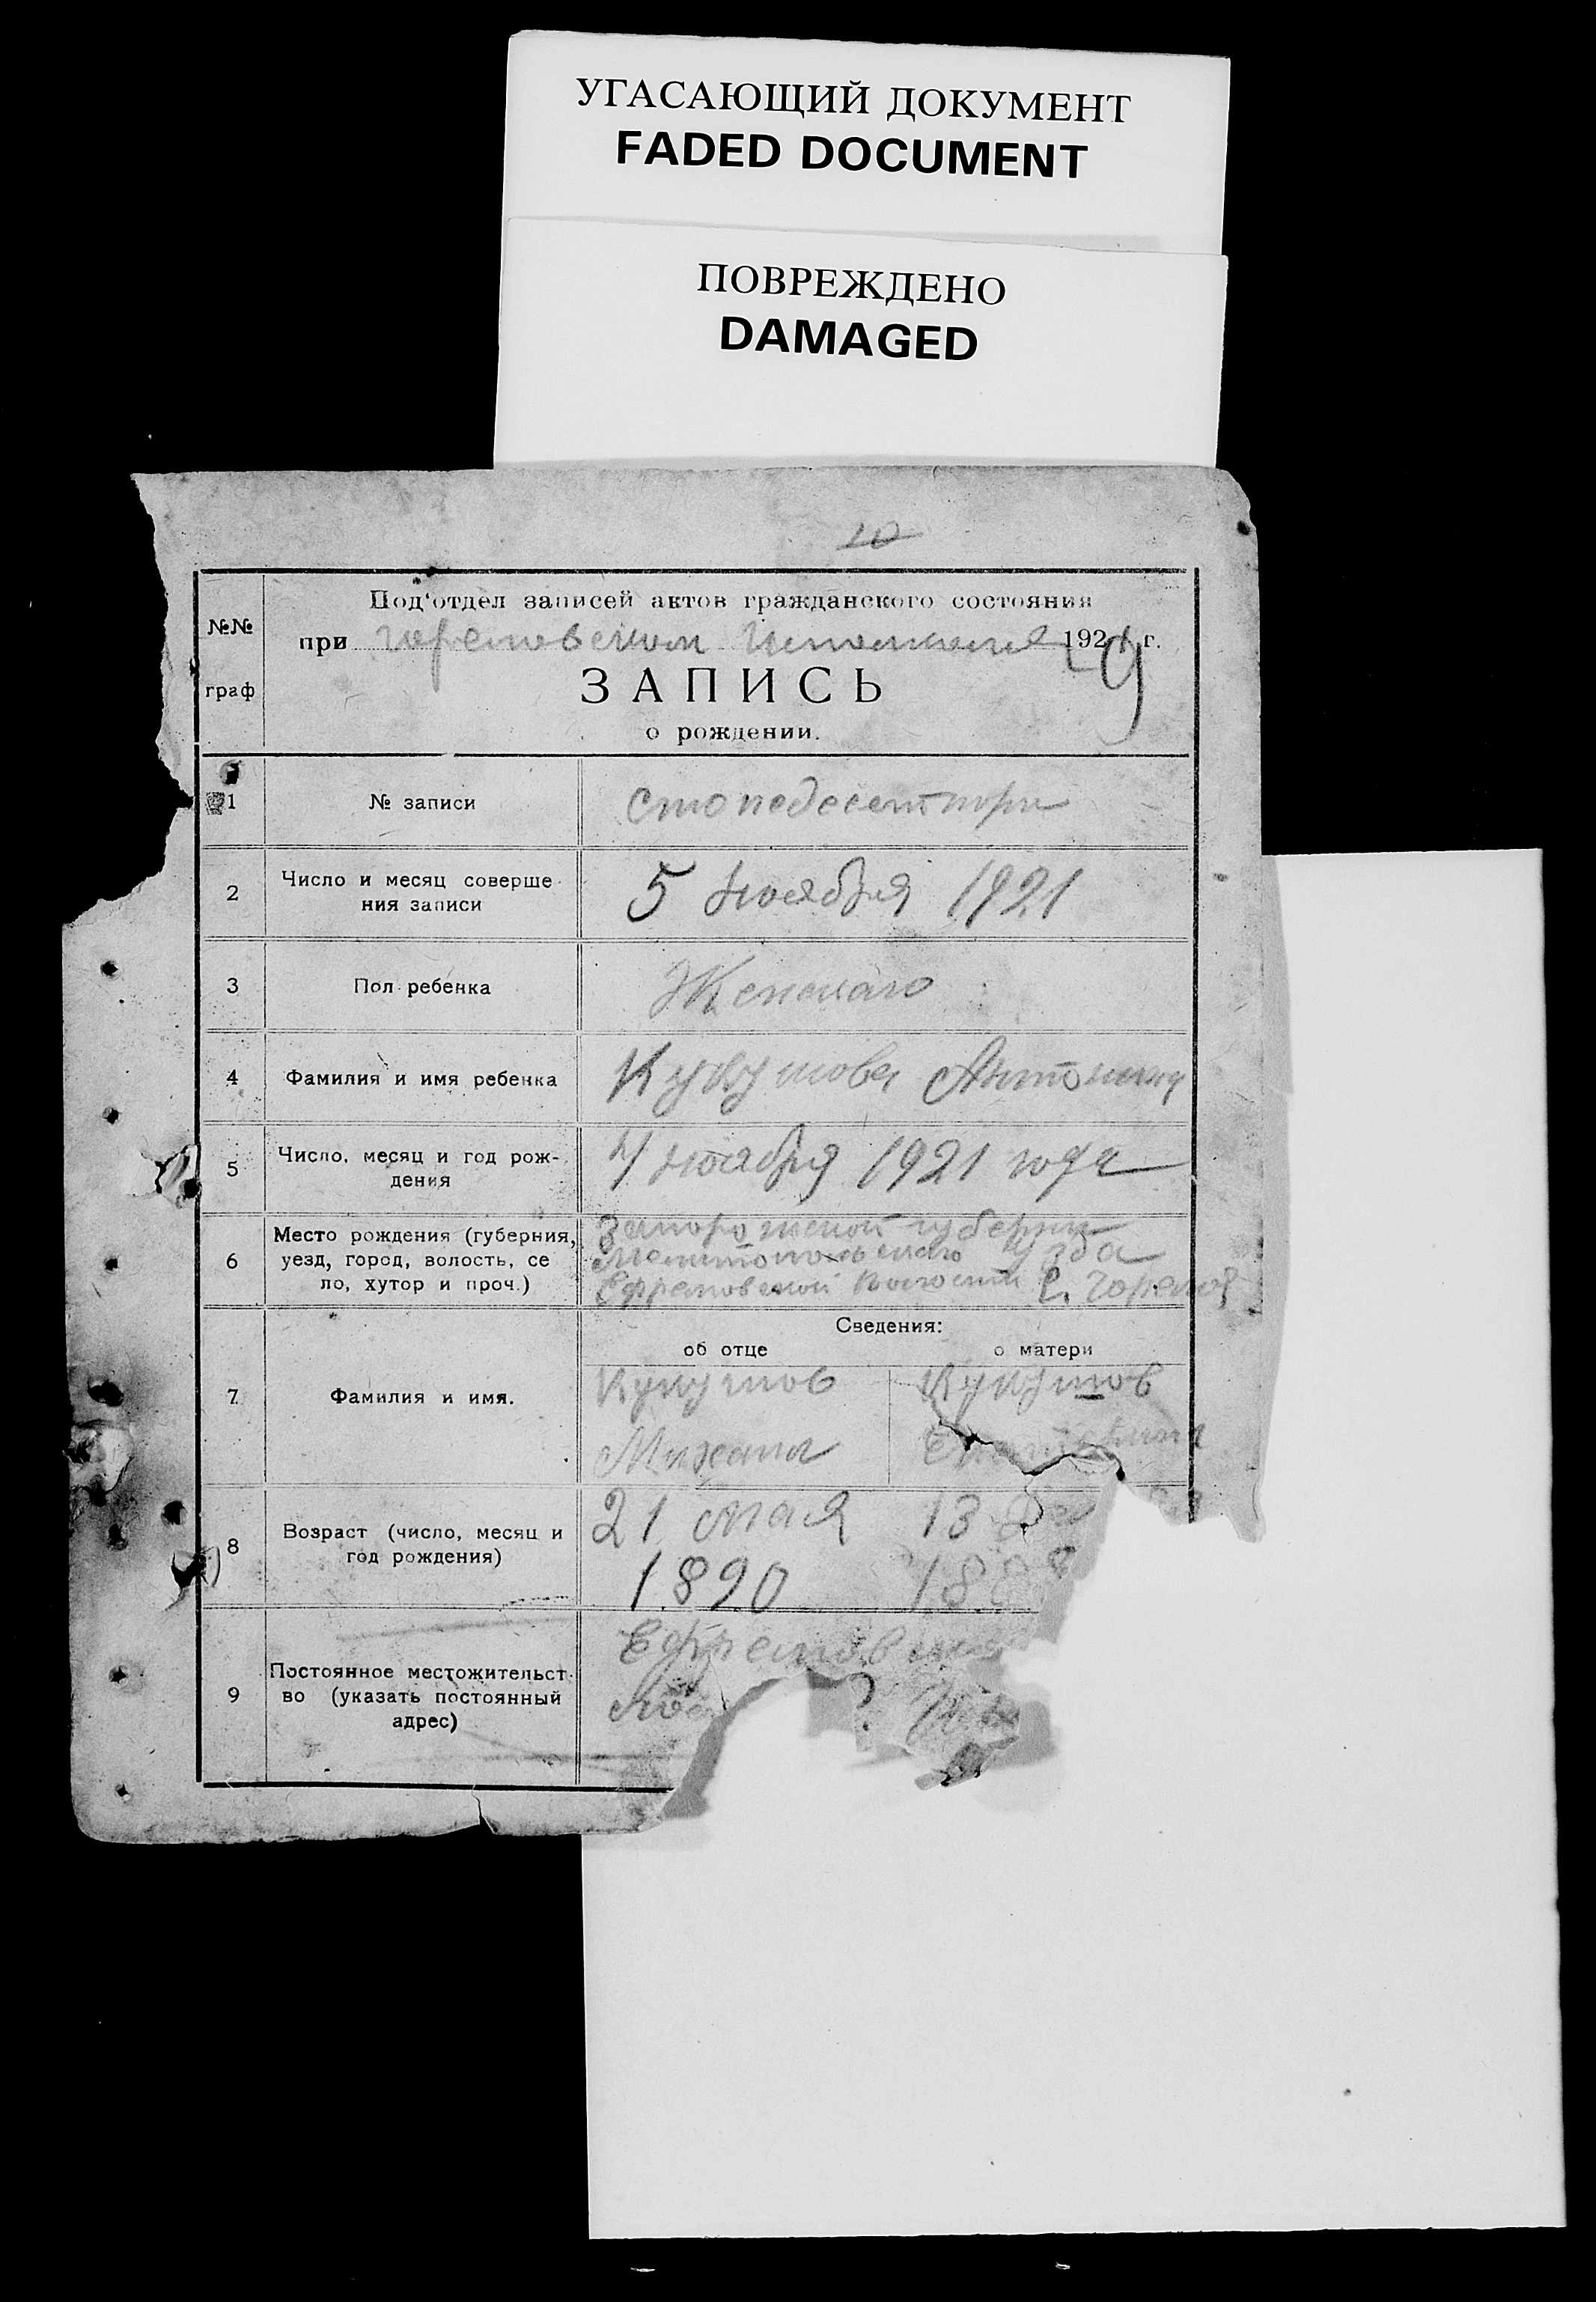 УГАСАЮЩИЙ ДОКУМЕНТ
FADED DOCUMENT
ПОВРЕЖДЕНО
DAMAGED
10
№№
граф
Под‘отдел записей актов гражданского состояния
при 1921 г.
9
ЗАПИСЬ
о рождении.
1 № записи
2 Число и месяц соверше
ния записи
5 ноября 1921
3 Пол ребенка Женскаго
4 Фамилия и имя ребенка Антонина
5 Число, месяц и год рож-
дения
4 ноября 1921 года
6 Место рождения (губерния,
уезд, город, волость, се
ло, хутор и проч.)
Запорожской губернии
Мелитопольского уезда
Ефремовской Волости С.
Сведения:
об отце о матери
7 Фамилия и имя.
Кукушов Кукушов
Михаил
8 Возраст (число, месяц и
год рождения)
21 мая 13
1890 188
9 Постоянное местожительст
во (указать постоянный
адрес)